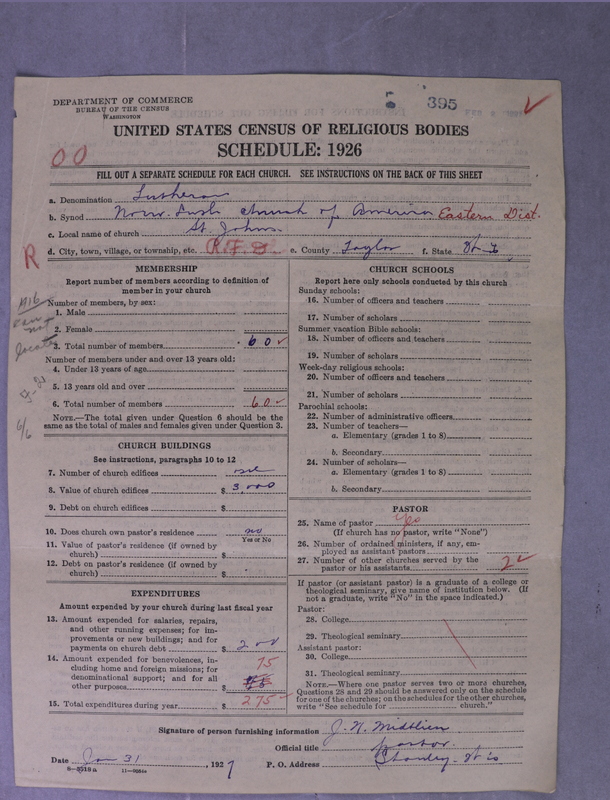 DEPARTMENT OF COMMERCE
BUREAU OF THE CENSUS
WASHINGTON
395
UNITED STATES CENSUS OF RELIGIOUS BODIES
SCHEDULE: 1926
00
FILL OUT A SEPARATE SCHEDULE FOR EACH CHURCH. SEE INSTRUCTIONS ON THE BACK OF THIS SHEET
a. Denomination Lutheran
b. Synod Norw. Luth church of America Eastern Dist.
c. Local name of church St. Johns
d. City, town, village, or township, etc. R.F.D. e. County Taylor f. State
R
MEMBERSHIP
Report number of members according to definition of member in your church
1916
Number of members, by sex:
1. Male
2. Female
3. Total number of members 60
Number of members under and over 13 years old:
4. Under 13 years of age
5. 13 years old and over
6. Total number of members 60
NOTE.—The total given under Question 6 should be
same as the total of males and females given under Question 3.
6/6
CHURCH BUILDINGS
See instructions, paragraphs 10 to 12
7. Number of church edifices one
8. Value of church edifices $ 3,000
9. Debt on church edifices $
10. Does church own pastor's residence? no
Yes or No
11. Value of pastor's residence (if owned by
church) $
12. Debt on pastor's residence (if owned by
church) $
EXPENDITURES
Amount expended by your church during last fiscal year
13. Amount expended for salaries, repairs,
and other running expenses; for im-
provements or new buildings; and for
payments on church debt $ 200
14. Amount expended for benevolences, in-
cluding home and foreign missions; for
denominational support; and for all
other purposes $ 75
15. Total expenditures during year $ 275
CHURCH SCHOOLS
Report here only schools conducted by this church
Sunday schools:
16. Number of officers and teachers
17. Number of scholars
Summer vacation Bible schools:
18. Number of officers and teachers
19. Number of scholars
Week-day religious schools:
20. Number of officers and teachers
21. Number of scholars
Parochial schools:
22. Number of administrative officers
23. Number of teachers—
a. Elementary (grades 1 to 8)
b. Secondary
24. Number of scholars—
a. Elementary (grades 1 to 8)
b. Secondary
PASTOR
25. Name of pastor Yes
(If church has no pastor, write "None")
26. Number of ordained ministers, if any, em-
ployed as assistant pastors
27. Number of other churches served by the
pastor or his assistants 2
If pastor (or assistant pastor) is a graduate of a college or
theological seminary, give name of institution below. (If
not a graduate, write "No" in the space indicated.)
Pastor:
28. College
29. Theological seminary
Assistant pastor:
30. College
31. Theological seminary
NOTE.—Where one pastor serves two or more churches,
Questions 28 and 29 should be answered only on the schedule
for one of the churches; on the schedules for the other churches,
write "See schedule for church."
Signature of person furnishing information J. N. Midtlien
Official title pastor.
Date Jan 31, 1927 P. O. Address Stanley